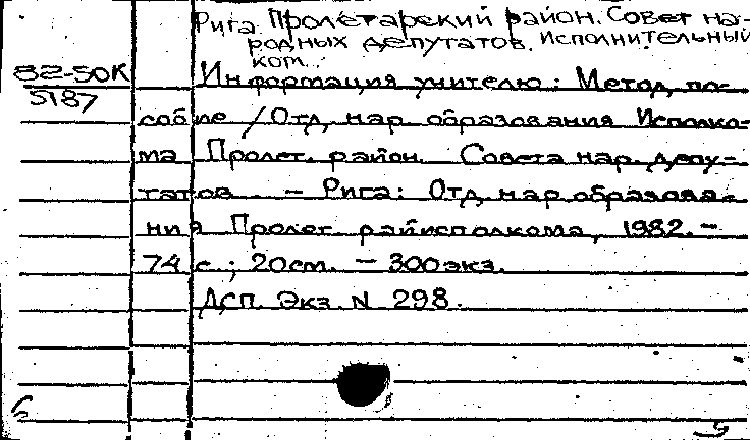 Рига. Пролетарский район. Совет на-
родных депутатов. Исполнительный
ком.
82-50К
5187
Информация учителю: Метод. по-
собие / Отд. нар. образования Исполко-
ма Пролет. район. Совета нар. депу-
татов. - Рига: Отд. нар. образова-
ния Пролет. райисполкома, 1982. -
74 с.; 20 см. - 300 экз.
Дсп. Экз. N 298.